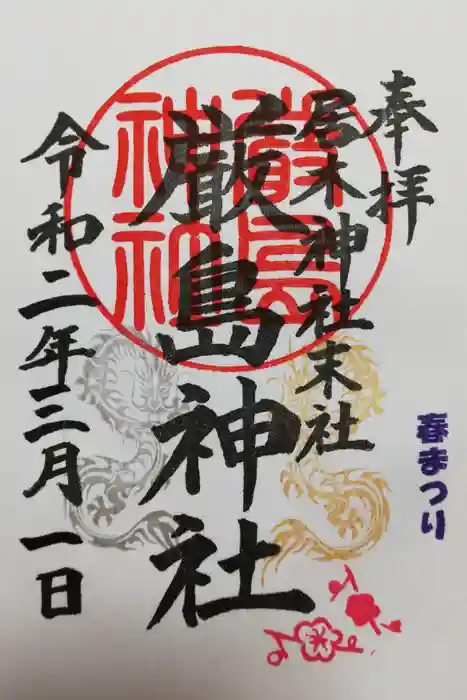 奉拝
居木神社末社
厳島神社
令和二年三月一日
春まつり
嚴島
神社